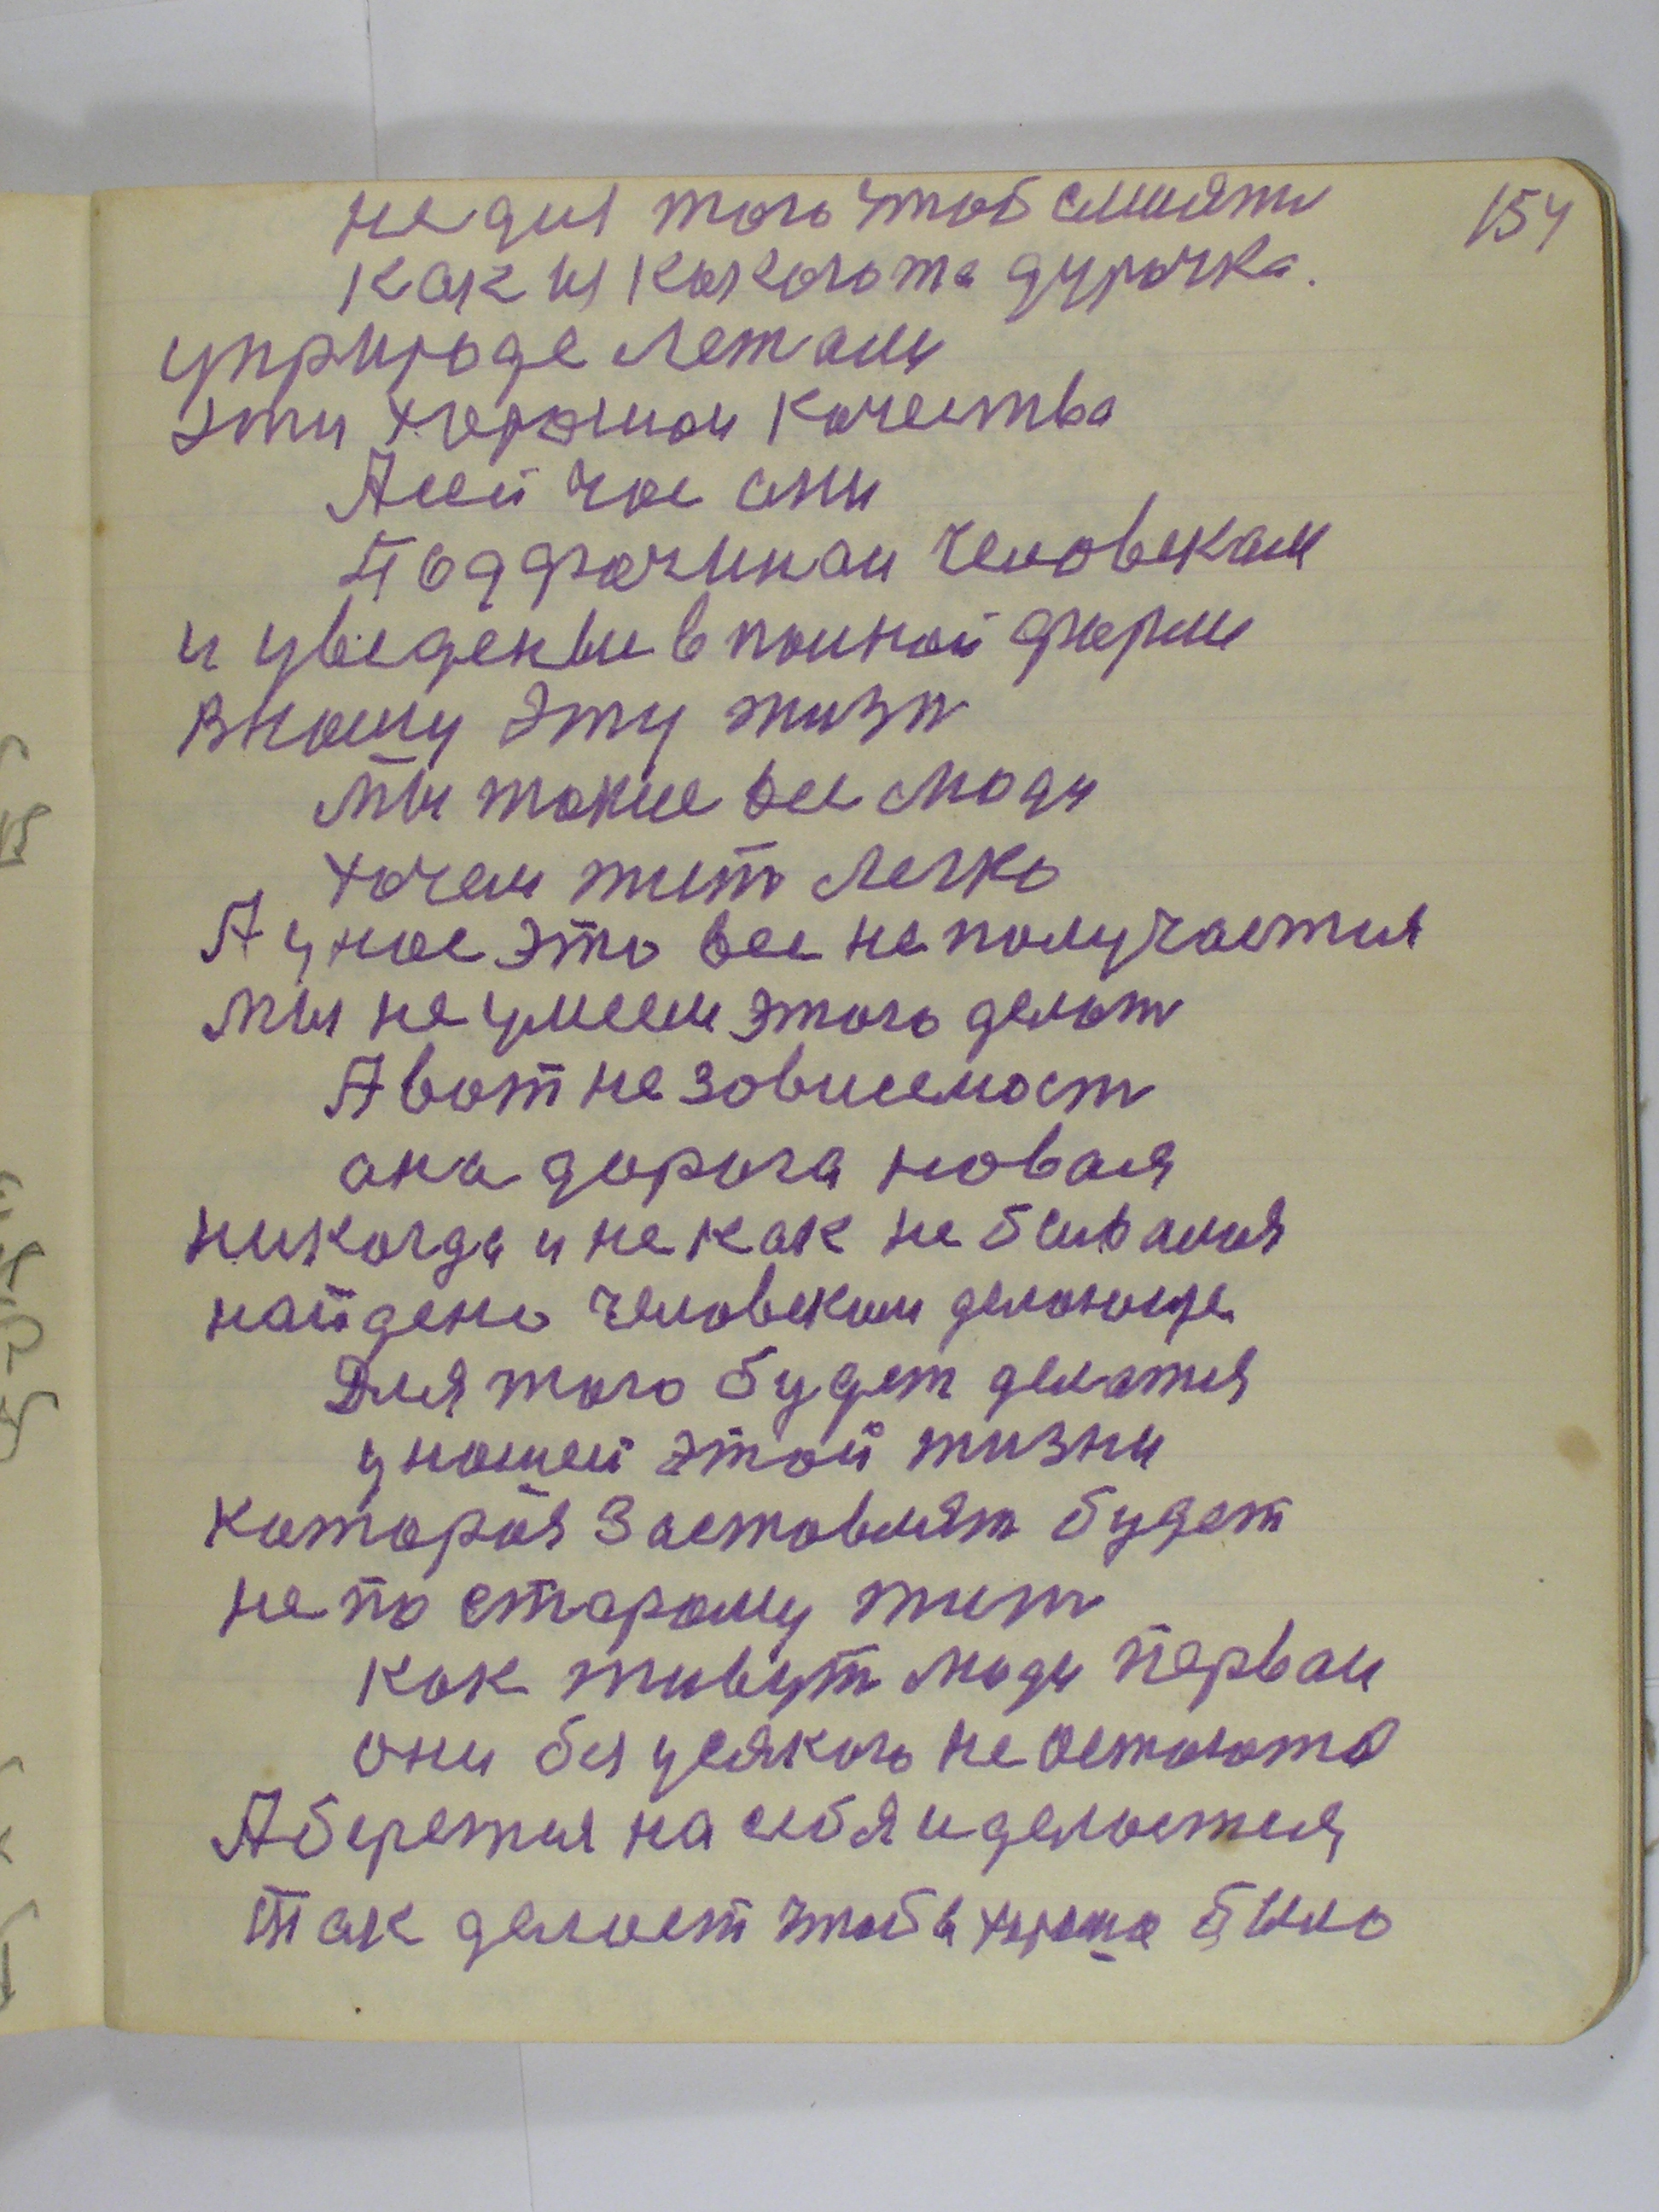 154
не для того чтоб смиятп
как из какогота дурачка.
уприроде летали
эти хорошаи качества
А сей час они
поддрачинаи человекам
и уведеные в полной форме
внашу эту жизн
мы такие все люди
хочем жит легко
А унас это все не получается
мы не умеем этого делат
А вот не зовисемост
ана дорога новая
никогда и не как не бывалая
найдено человеком делающе
Для того будет делатся
у нашей этой жизни
каторая заставлят будет
не по старому жит
как живут люди перваи
они без усякого не остаюта
А берется на себя и делается
Так делает чтобы хороша было